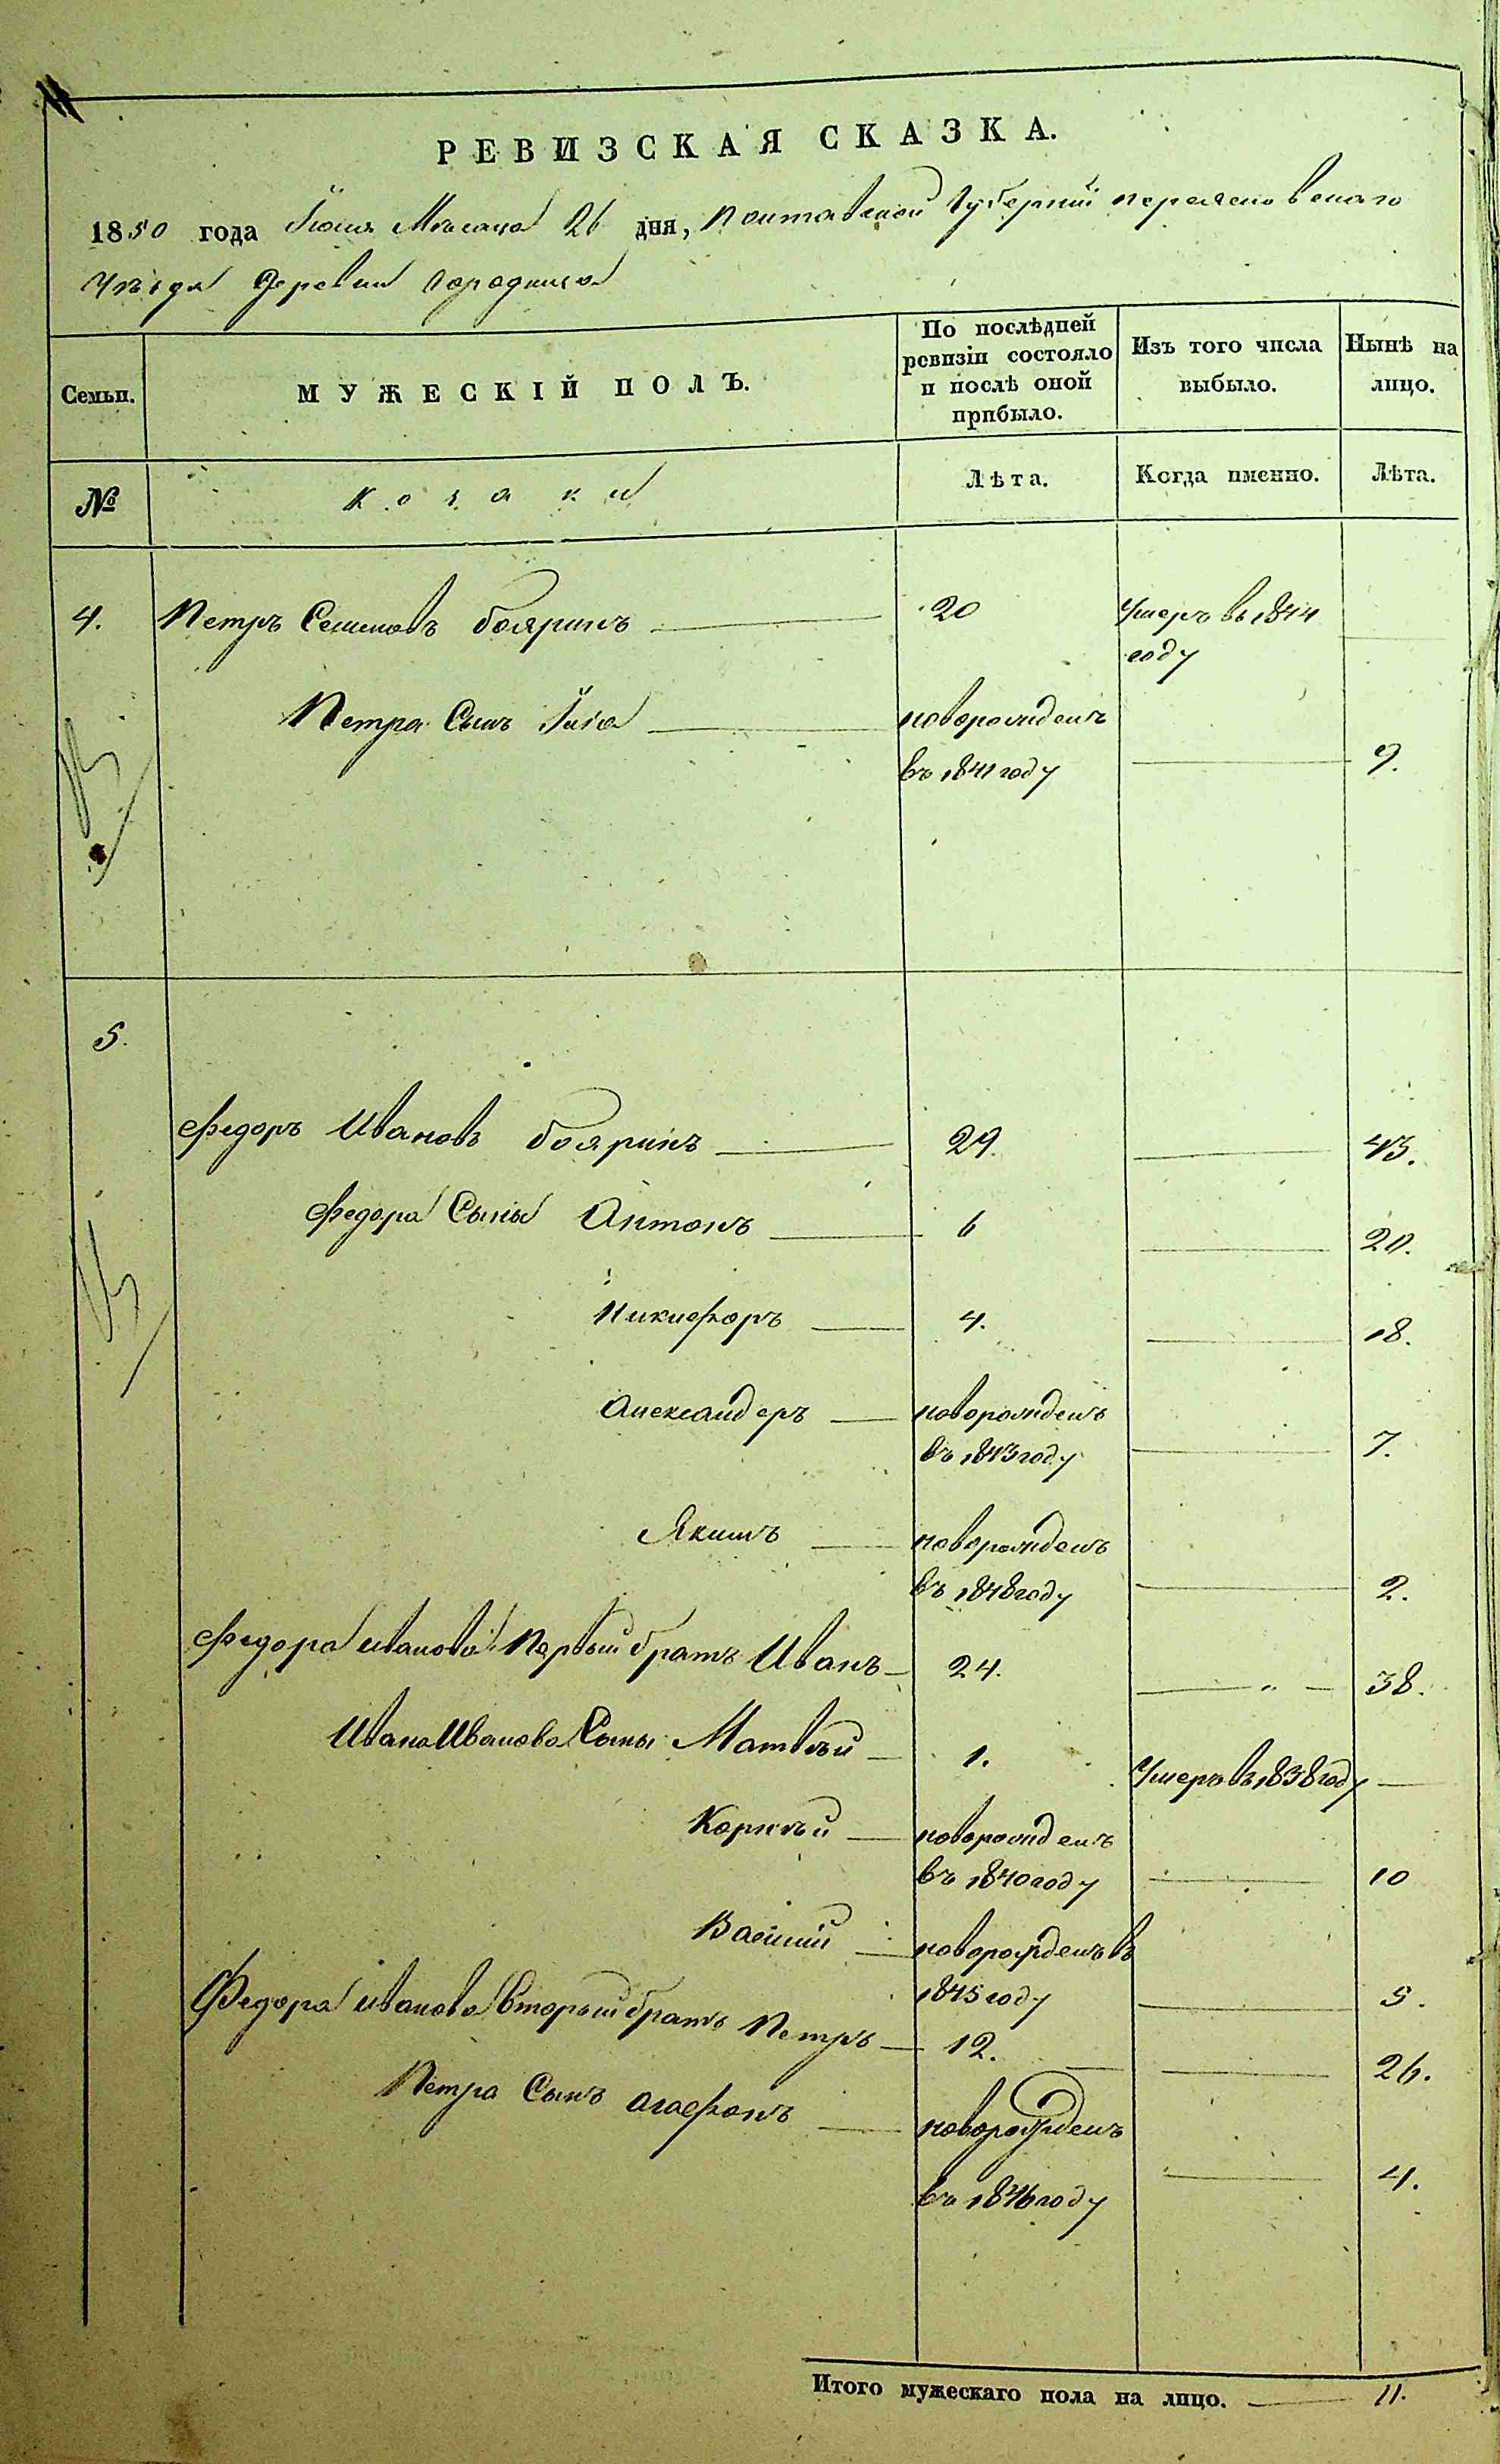 РЕВИЗСКАЯ СКАЗКА.
1850 года Іюня Мѣсяца 26 дня, Полтавской Губерніи переяславскаго
Уѣзда Деревни Городища
Семьи.
МУЖЕСКІЙ ПОЛЪ.
По послѣдней ревизіи состояло и послѣ оной прибыло.
Изъ того числа выбыло.
Нынѣ на лицо.
№
козаки
Лѣта.
Когда именно.
Лѣта.
4. Петръ Семеновъ бояринъ 20 Умеръ въ 1844
году
Петра Сынъ Илія новорожденъ
въ 1841 году 9.
5.
Федоръ Ивановъ бояринъ 29. 43.
Федора Сыны Антонъ 6 20.
Никифоръ 4. 18.
Александеръ новорожденъ
въ 1843 году 7.
Якимъ новорожденъ
въ 1848 году 2.
Федора иванова Первый братъ Иванъ 24. 38.
Ивана Иванова Сыны Матвѣй 1. Умеръ въ 1838 году
Корнѣй новорожденъ
въ 1840 году 10
Василій новорожденъ въ
1845 году 5.
Федора иванова Второй братъ Петръ 12. 26.
Петра Сынъ агафонъ новорожденъ
въ 1846 году 4.
Итого мужескаго пола на лицо. 11.